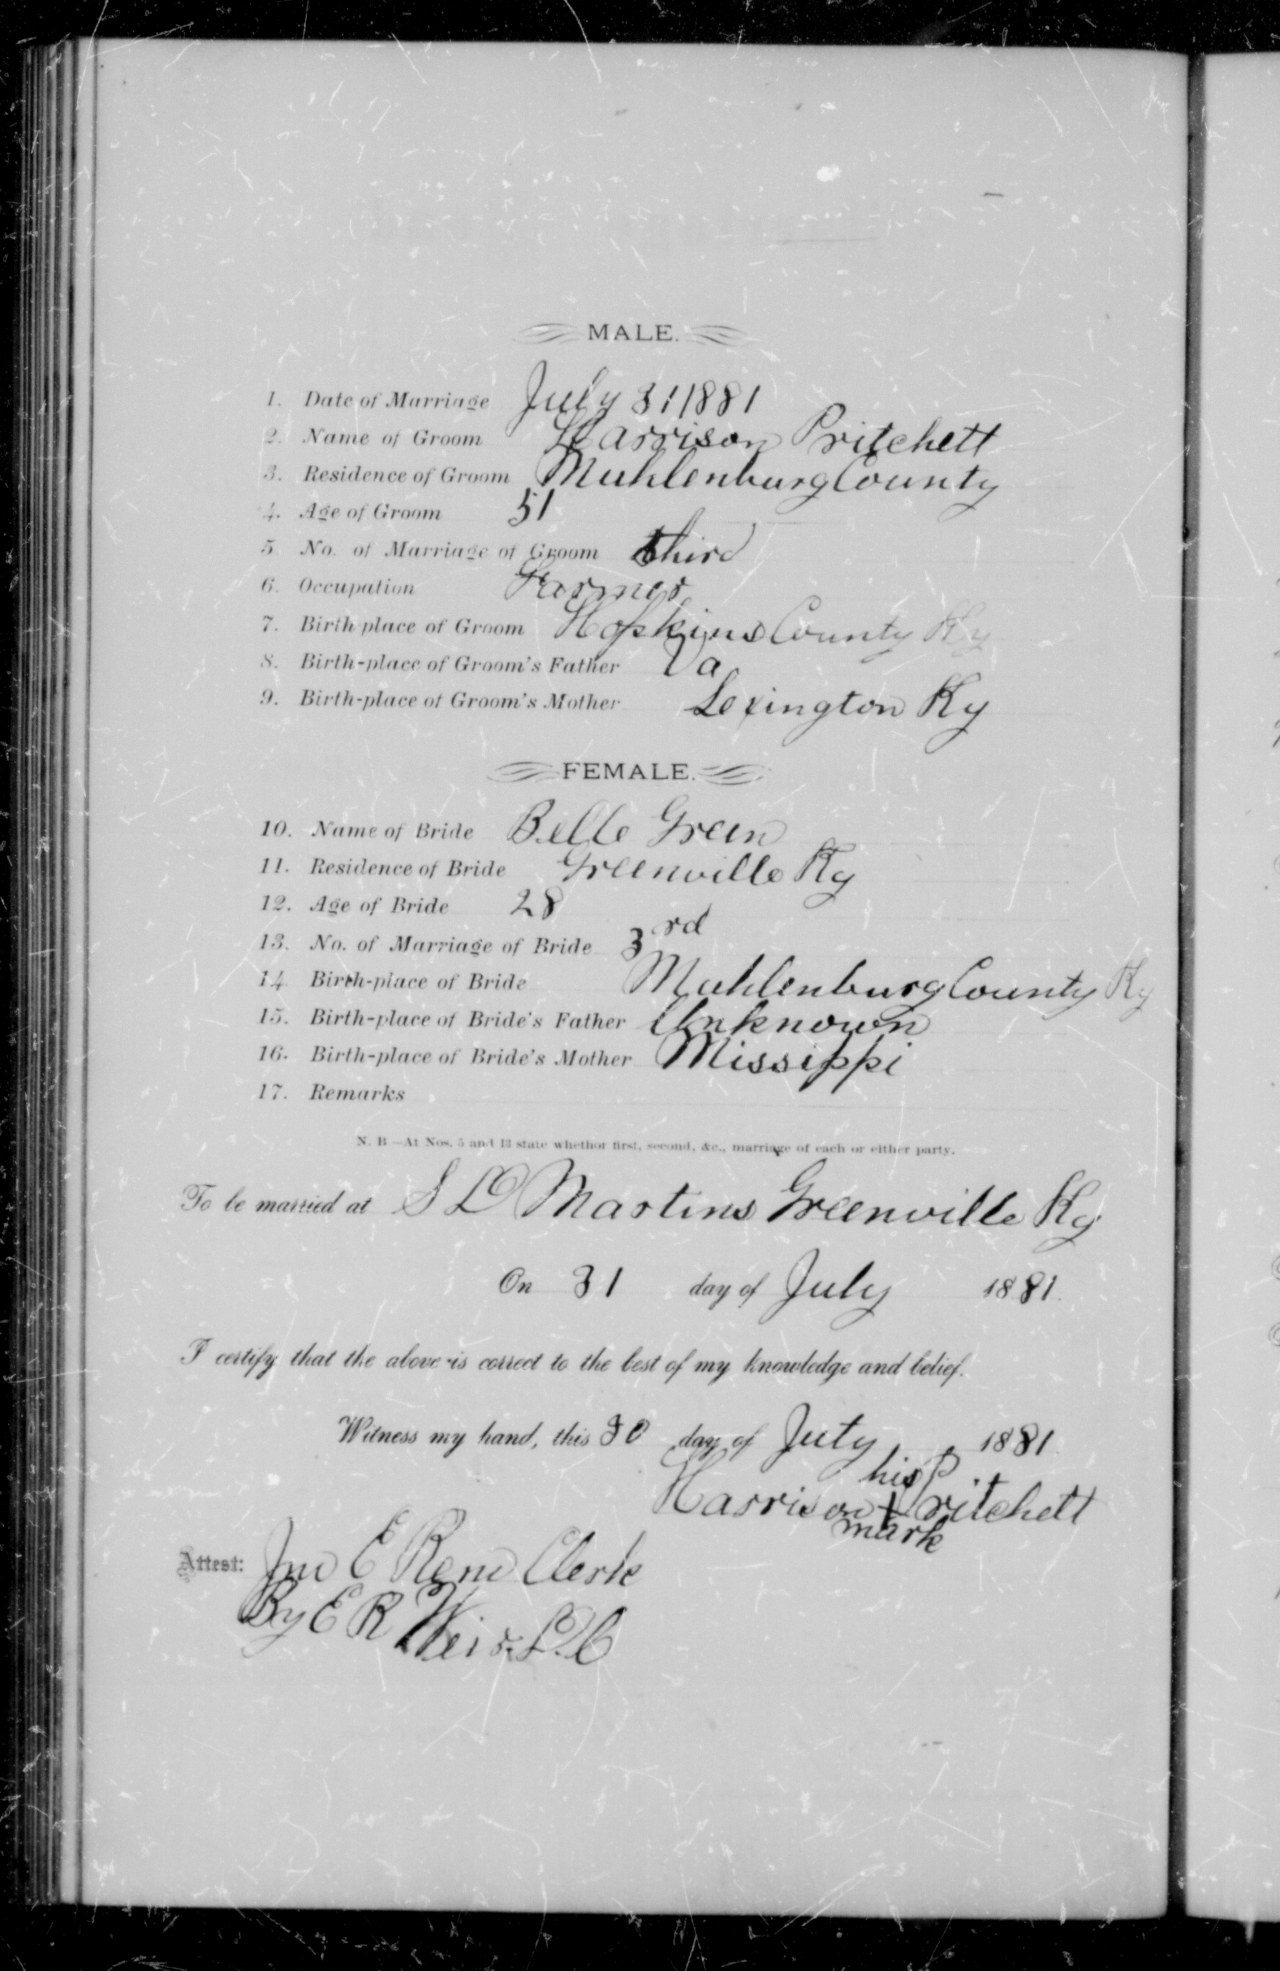 MALE.
1. Date of Marriage July 31 1881
2. Name of Groom Harrison Pritchett
3. Residence of Groom Muhlenburg County
4. Age of Groom 51
5 No. of Marriage of Groom third
6. Occupation Farmer
7. Birth place of Groom Hopkins County Ky
8. Birth-place of Groom's Father Va
9. Birth-place of Groom's Mother Lexington Ky
FEMALE.
10. Name of Bride Belle Green
11. Residence of Bride Greenville Ky
12. Age of Bride 28
13. No. of Marriage of Bride 3rd
14 Birth-place of Bride Muhlenburg County Ky
15. Birth-place of Bride's Father Unknown
16. Birth-place of Bride's Mother Missippi
17. Remarks
N. B—At Nos. 5 and 13 state whether first, second, &c., marriage of each or either party.
To be married at S D Martins Greenville Ky
On 31 day of July 1881.
I certify that the above is correct to the best of my knowledge and belief.
Witness my hand, this 30 day of July 1881
his
Harrison + Pritchett
mark
Attest: Jno E Reno Clerk
By E R Weir D.C